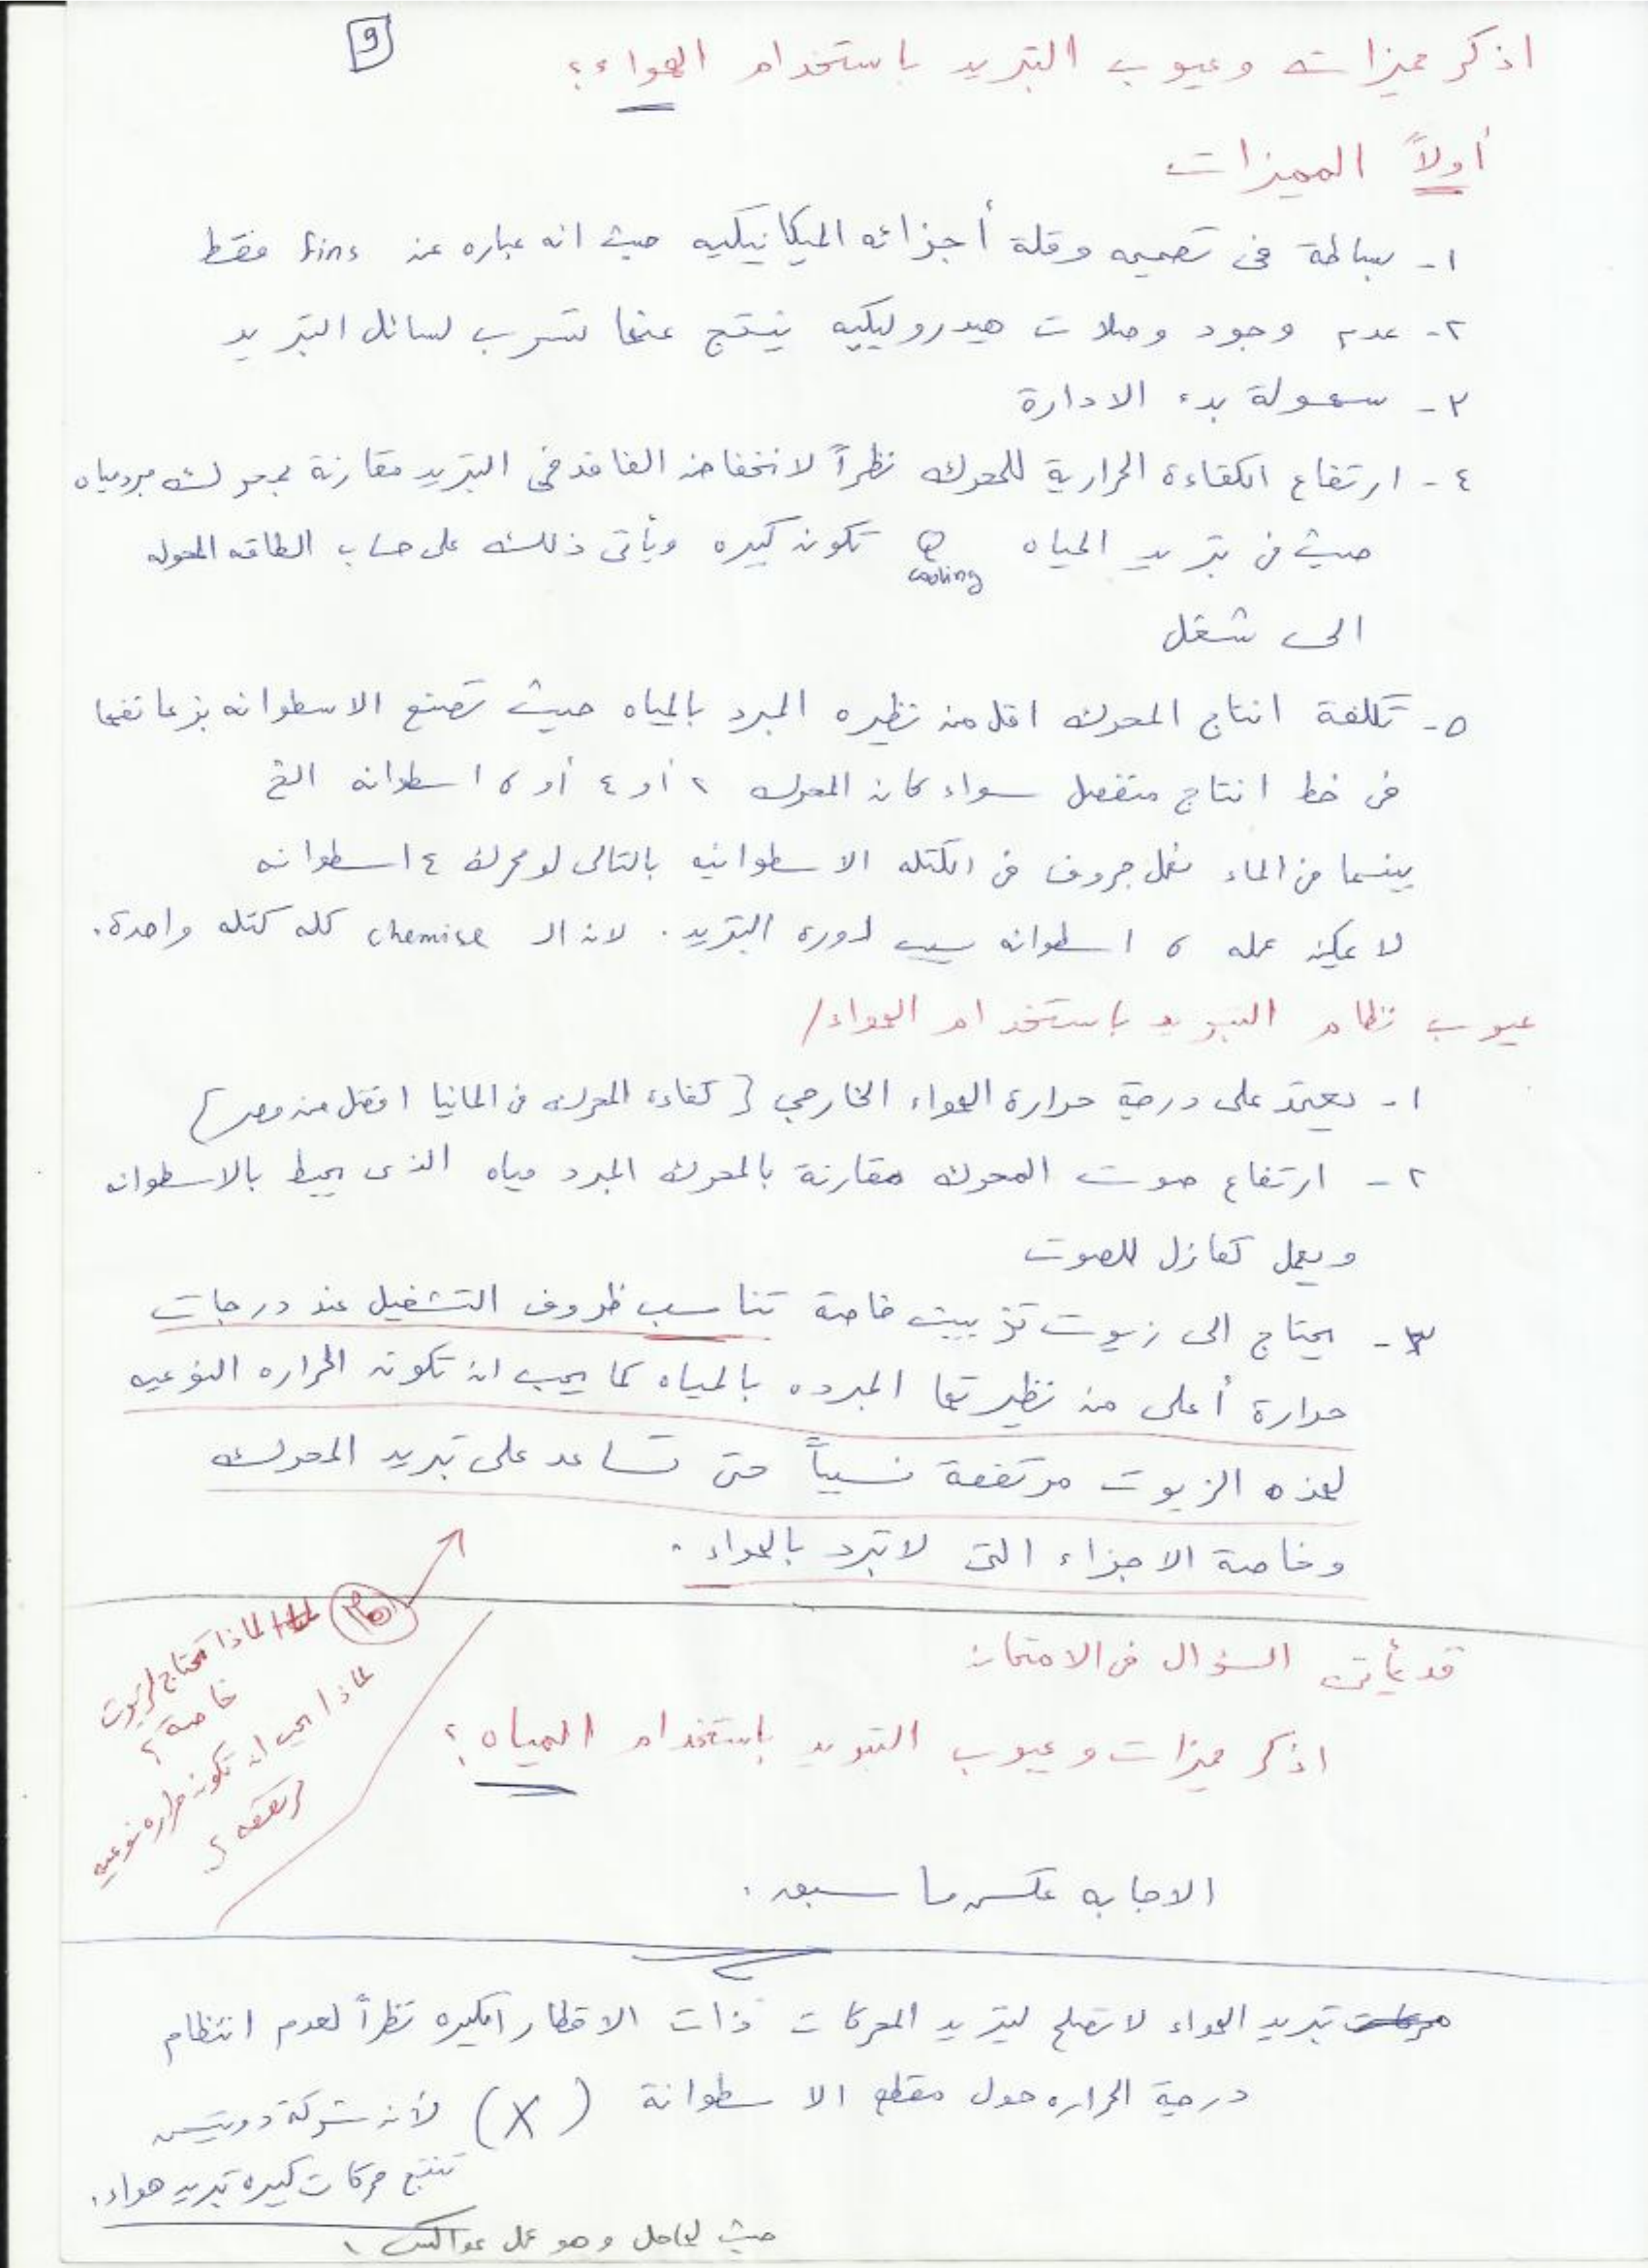 9
اذكر مميزات وعيوب التبريد باستخدام الهواء؟
أولاً المميزات
١- بساطة فى تصميمه وقلة أجزائه الميكانيكيه حيث انه عباره عن fins فقط
٢- عدم وجود وصلات هيدروليكيه ينتج عنها تسرب لسائل التبريد
٣- سهولة بدء الادارة
٤- ارتفاع الكفاءة الحرارية للمحرك نظراً لانخفاض الفاقد فى التبريد مقارنة بمحرك مبرد مياه
حيث فى تبريد المياه Q cooling تكون كبيره ويأتى ذلك على حساب الطاقه المحوله
الى شغل
٥- تكلفة انتاج المحرك اقل من نظيره المبرد بالمياه حيث تصنع الاسطوانه بزعانفها
فى خط انتاج منفصل سواء كان المحرك ٢ أو ٤ أو ٦ اسطوانه الخ
بينما فى الماء نعمل جروف فى الكتله الاسطوانيه بالتالى لو محرك ٤ اسطوانه
لا يمكن عمله ٦ اسطوانه بسبب دورة التبريد. لان الـ chemise كله كتله واحدة.
عيوب نظام التبريد باستخدام الهواء/
١- يعتمد على درجة حرارة الهواء الخارجي {كفاءة المحرك فى المانيا افضل من مصر}
٢- ارتفاع صوت المحرك مقارنة بالمحرك المبرد مياه الذى يحيط بالاسطوانه
ويعمل كعازل للصوت
٣- يحتاج الى زيوت تزييت خاصة تناسب ظروف التشغيل عند درجات
حرارة أعلى من نظيرتها المبرده بالمياه كما يجب ان تكون الحراره النوعيه
لهذه الزيوت مرتفعة نسبياً حتى تساعد على تبريد المحرك
وخاصة الاجزاء التى لا تبرد بالهواء.
هام لماذا تحتاج لزيوت
خاصة؟
لماذا يجب ان تكون حراره نوعيه
مرتفعه؟
قد يأتى السؤال فى الامتحان
اذكر مميزات وعيوب التبريد باستخدام المياه؟
الاجابه عكس ما سبق.
تبريد الهواء لا تصلح لتبريد المحركات ذات الاقطار الكبيره نظراً لعدم انتظام
درجة الحراره حول مقطع الاسطوانة (X) لأن شركة دويتس
تنتج محركات كبيره تبريد هواء.
حيث وهو عمل